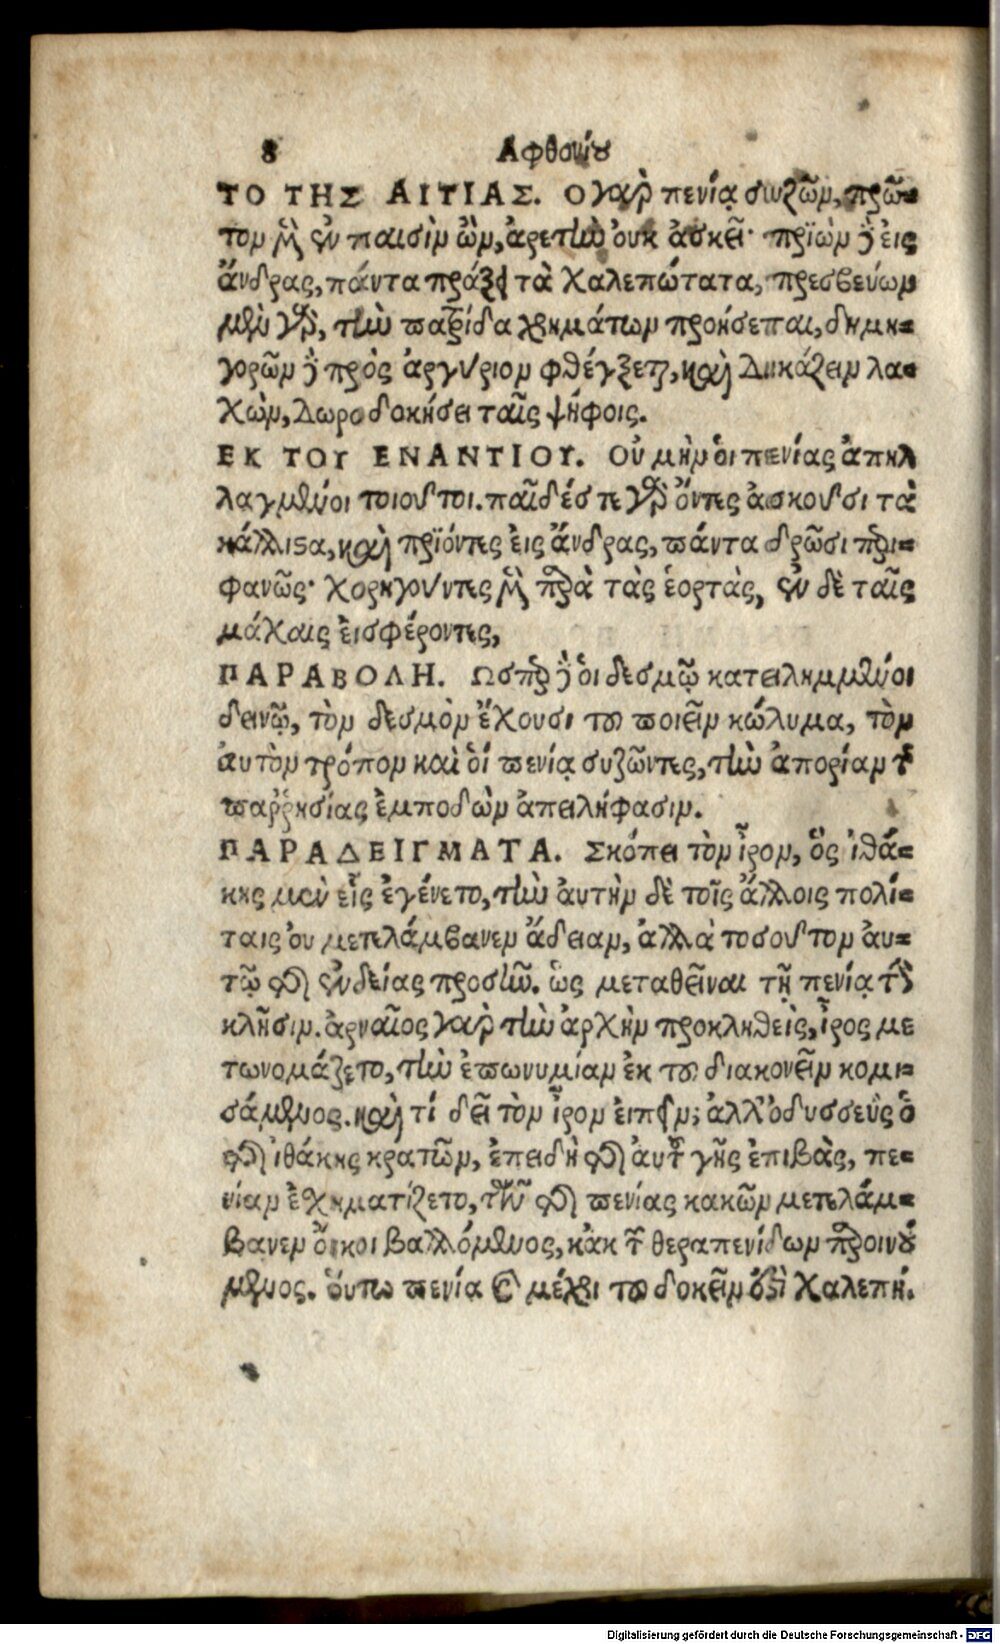 8 Αφθονίου
ΤΟ ΤΗΣ ΑΙΤΙΑΣ. Ο γὰρ πενίᾳ συζῶν, πρῶ-
τον μὲν ἐν παισὶν ὢν, ἀρετὴν ὀυκ ἀσκεῖ· πρϊὼν δὲ εἰς
ἄνδρας, πάντα πράξει τὰ χαλεπώτατα, πρεσβεύων
μὲν γὰρ, τὴν πατρίδα χρημάτων προήσεται, δημη-
γορῶν δὲ πρὸς ἀργύριον φθέγξεται, καὶ δικάζειν λα-
χὼν, δωροδοκήσει ταῖς ψήφοις.
ΕΚ ΤΟΥ ΕΝΑΝΤΙΟΥ. Οὐ μὴν ὁι πενίας ἀπηλ
λαγμένοι τοιοῦτοι. παῖδές τε γὰρ ὄντες ἀσκοῦσι τὰ
κάλλιστα, καὶ πρϊόντες ἐις ἄνδρας, πάντα δρῶσι περι-
φανῶς· χορηγοῦντες μὲν παρὰ τὰς ἑορτὰς, ἐν δὲ ταῖς
μάχαις ἐισφέροντες,
ΠΑΡΑΒΟΛΗ. Ωσπερ δὲ ὁι δεσμῷ κατειλημμένοι
δεινῷ, τὸν δεσμὸν ἔχουσι τοῦ ποιεῖν κώλυμα, τὸν
ἀυτὸν τρόπον καὶ ὁι πενίᾳ συζῶντες, τὴν ἀπορίαν τῆς
παῤῥησίας ἐμποδὼν ἀπειλήφασιν.
ΠΑΡΑΔΕΙΓΜΑΤΑ. Σκόπει τὸν ἶρον, ὃς ἰθά-
κης μὲν εἷς ἐγένετο, τὴν ἀυτὴν δὲ τοῖς ἄλλοις πολί-
ταις ὀυ μετελάμβανεν ἄδειαν, ἀλλὰ τοσοῦτον ἀυ-
τῷ τῆς ἐνδείας προσῆν. ὡς μεταθεῖναι τῇ πενίᾳ τὴν
κλῆσιν. ἀρναῖος γὰρ τὴν ἀρχὴν προκληθεὶς, ἶρος με
τωνομάζετο, τὴν ἐπωνυμίαν ἐκ τοῦ διακονεῖν κομι-
σάμενος. καὶ τί δεῖ τὸν ἶρον ἐιπεῖν; ἀλλ' ὀδυσσεὺς ὁ
τῆς ἰθάκης κρατῶν, ἐπειδὴ τῆς ἀυτῆς γῆς ἐπιβὰς, πε-
νίαν ἐχηματίζετο, τῶν τῆς πενίας κακῶν μετελάμ-
βανεν ὄικοι βαλλόμενος, κἀκ τῶν θεραπενίδων παροινού
μενος. ὅυτω πενία καὶ μέχρι τοῦ δοκεῖν ἐστὶ χαλεπή.
Digitalisierung gefördert durch die Deutsche Forschungsgemeinschaft - DFG